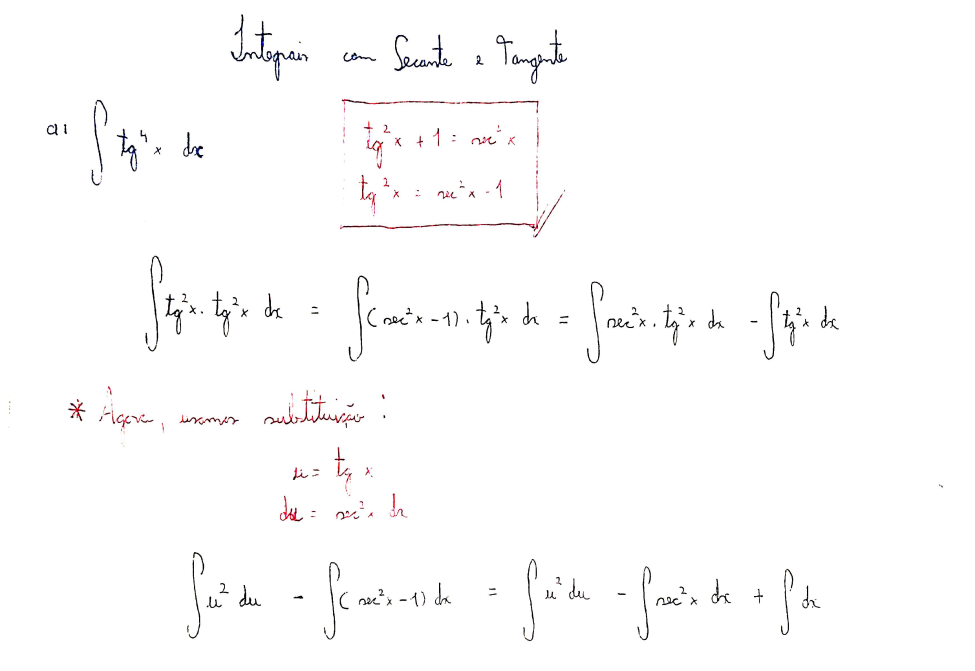 Integrais com Secante e Tangente
a) ∫ tg⁴x dx
tg²x + 1 = sec²x
tg²x = sec²x - 1
∫ tg²x . tg²x dx = ∫ (sec²x - 1) . tg²x dx = ∫ sec²x . tg²x dx - ∫ tg²x dx
* Agora, usamos substituição :
u = tg x
du = sec²x dx
∫ u² du - ∫ (sec²x - 1) dx = ∫ u² du - ∫ sec²x dx + ∫ dx